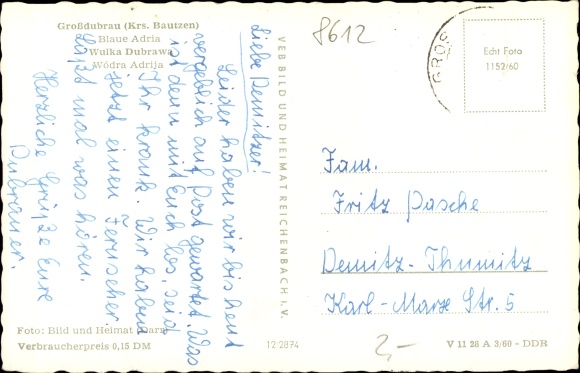 Großdubrau (Krs. Bautzen)
Blaue Adria
Wulka Dubrawa
Wódra Adrija
Liebe Demitzer!
Leider haben wir bis heut
vergeblich auf Post gewartet. Was
ist denn mit Euch los, seid
Ihr krank. Wir haben
jetzt einen Fernseher.
Laßt mal was hören.
Herzliche Grüße Eure
Dubrauer.
Foto: Bild und Heimat
Verbraucherpreis 0,15 DM
12 2874
VEB BILD UND HEIMAT REICHENBACH I. V.
8612
GROß
Echt Foto
1152/60
Fam.
Fritz Pasche
Demitz-Thumitz
Karl-Marx Str. 5
2,-
V 11 28 A 3/60 - DDR